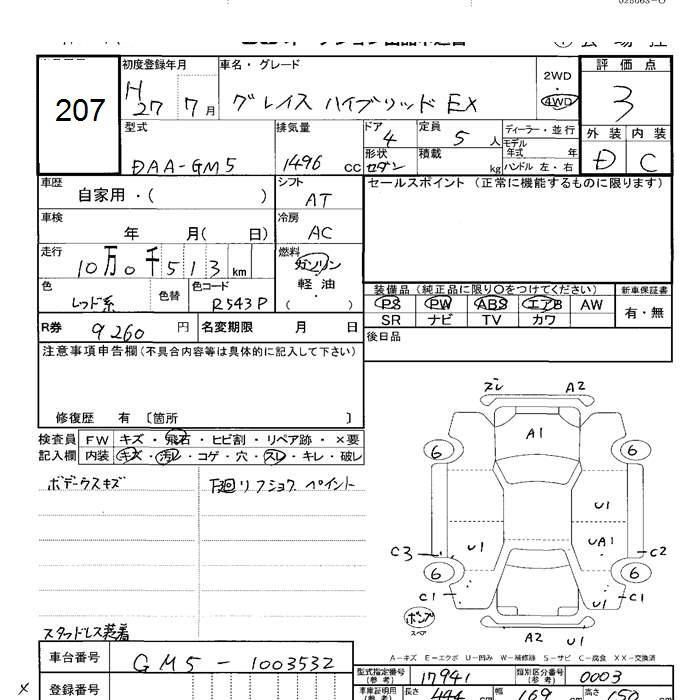 028063-0
オークション出品申込書
会場控
207
初度登録年月
車名・グレード
2WD
4WD
評価点
H 27 7月
グレイス ハイブリッド EX
3
外装 内装
D C
型式
排気量
ドア
定員
ディーラー・並行
DAA-GM5
1496 cc
4
5 人
モデル年式 年
形状
積載
セダン
kg
ハンドル 左・右
車歴
自家用・( )
シフト
AT
セールスポイント(正常に機能するものに限ります)
車検
年 月( 日)
冷房
AC
走行
10万0千513km
燃料
ガソリン・軽油・( )
色
レッド系
色替
色コード
R543P
装備品(純正品に限り○をつけてください)
新車保証書
PS PW ABS エアB AW
SR ナビ TV カワ
有・無
R券 9260 円
名変期限 月 日
後日品
注意事項申告欄(不具合内容等は具体的に記入して下さい)
修復歴 有 〔箇所 〕
検査員記入欄
FW キズ・飛石・ヒビ割・リペア跡・×要
内装 キズ・汚レ・コゲ・穴・スレ・キレ・破レ
ボデークスキズ
下廻リフショク ペイント
スタッドレス装着
ズレ A2
A1
6 6
U1
U1 UA1
C3 C2
6 6
C1 C1
U1
パンプ
スペア
A2 U1
A-キズ E-エクボ U-凹み W-補修跡 S-サビ C-腐食 XX-交換済
車台番号
GM5-1003532
型式指定番号(参考)
17941
類別区分番号(参考)
0003
x
登録番号
車庫証明用(参考)
長さ 444 cm
幅 169 cm
高さ 150 cm